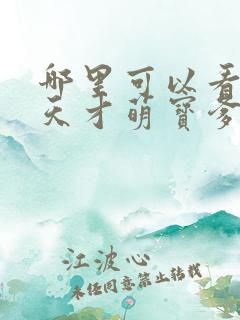 哪里可以看
天才萌寶爹
江波心
未经同意禁止转载